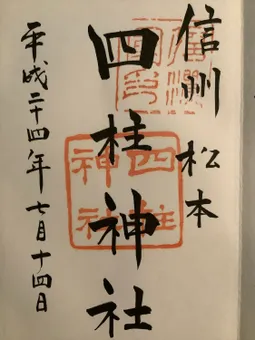 信州 松本
四柱神社
平成二十四年 七月十四日
四柱
神社